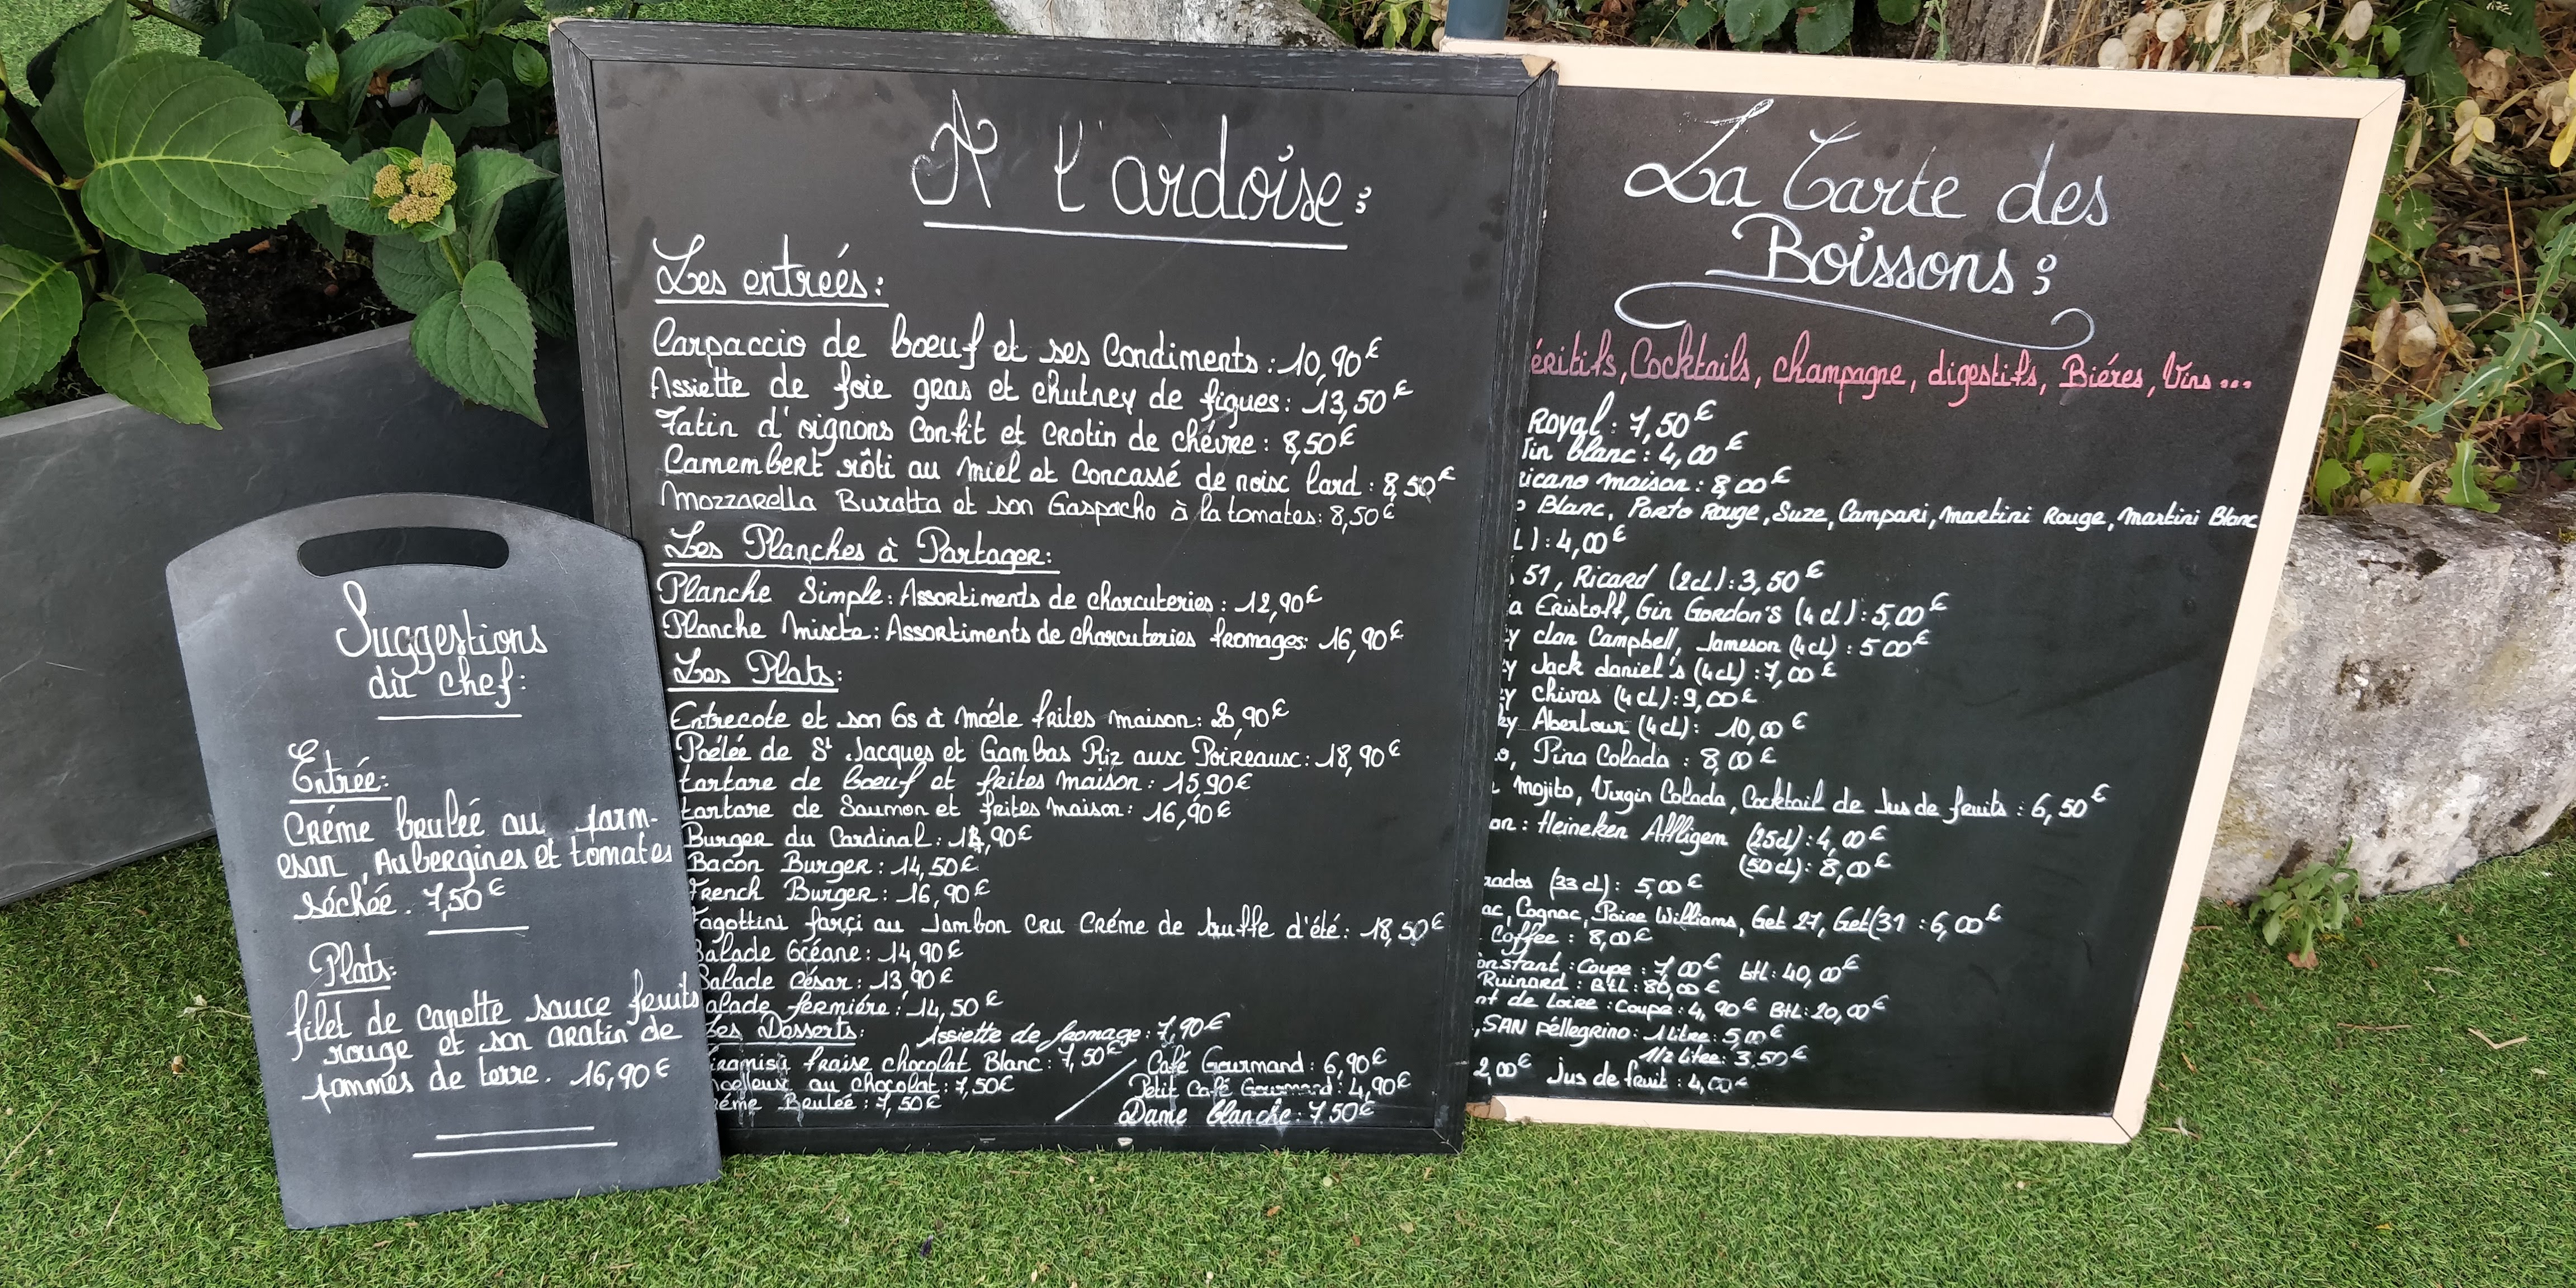 Suggestions
du chef:
Entrée:
Créme brulée au parm-
esan, Aubergines et tomates
séchée. 7,50€
Plats:
filet de canette sauce fruits
rouge et son gratin de
pommes de terre. 16,90€
A l'ardoise:
Les entreés:
Carpaccio de boeuf et ses Condiments: 10,90€
Assiette de foie gras et chutney de figues: 13,50€
Tatin d'oignons Confit et crotin de chévre: 8,50€
Camembert rôti au miel et Concassé de noix lard: 8,50€
Mozzarella Buratta et son Gaspacho à la tomates: 8,50€
Les Planches à Partager:
Planche Simple: Assortiments de charcuteries: 12,90€
Planche mixte: Assortiments de charcuteries fromages: 16,90€
Les Plats:
Entrecote et son Os à moéle frites maison: 20,90€
Poélée de St Jacques et Gambas Riz aux Poireaux: 18,90€
tartare de boeuf et frites maison: 15,90€
tartare de Saumon et frites maison: 16,90€
Burger du Cardinal: ,90€
Bacon Burger: 14,50€
French Burger: 16,90€
agottini farçi au Jambon cru Créme de truffe d'été: 18,50€
Salade Océane: 14,90€
Salade César: 13,90€
alade fermiére: 14,50€
Les Desserts: Assiette de fromage: 7,90€
iramisu fraise chocolat Blanc: 7,50€ Café Gourmand: 6,90€
moelleux au chocolat: 7,50€ Petit Café Gourmand: 4,90€
réme Brulée: 7,50€ Dame blanche: 7.50€
La Carte des
Boissons:
éritifs, Cocktails, champagne, digestifs, Biéres, Vins...
Royal: 7,50€
Vin blanc: 4,00€
ricano maison: 8,00€
o Blanc, Porto Rouge, Suze, Campari, martini Rouge, martini Blanc
L): 4,00€
51, Ricard (2cL): 3,50€
a Éristoff, Gin Gordon's (4cl): 5,00€
y clan Campbell, Jameson (4cl): 5 00€
y Jack daniel's (4cl): 7,00€
y chivas (4cl): 9,00€
ky Aberlour (4cl): 10,00€
o, Pina Colada: 8,00€
mojito, Virgin Colada, Cocktail de Jus de fruits: 6,50€
on: Heineken Affligem (25cl): 4,00€
(50cl): 8,00€
rados (33cl): 5,00€
ac, Cognac, Poire Williams, Get 27, Get(31: 6,00€
Coffee: 8,00€
onstant: Coupe: 7,00€ btl: 40,00€
Ruinard: Btl: 80,00€
nt de Loire: Coupe: 4,90€ Btl: 20,00€
, SAN Péllegrino: 1 Litre: 5,00€
1/2 Litre: 3,50€
2,00€ Jus de fruit: 4,00€